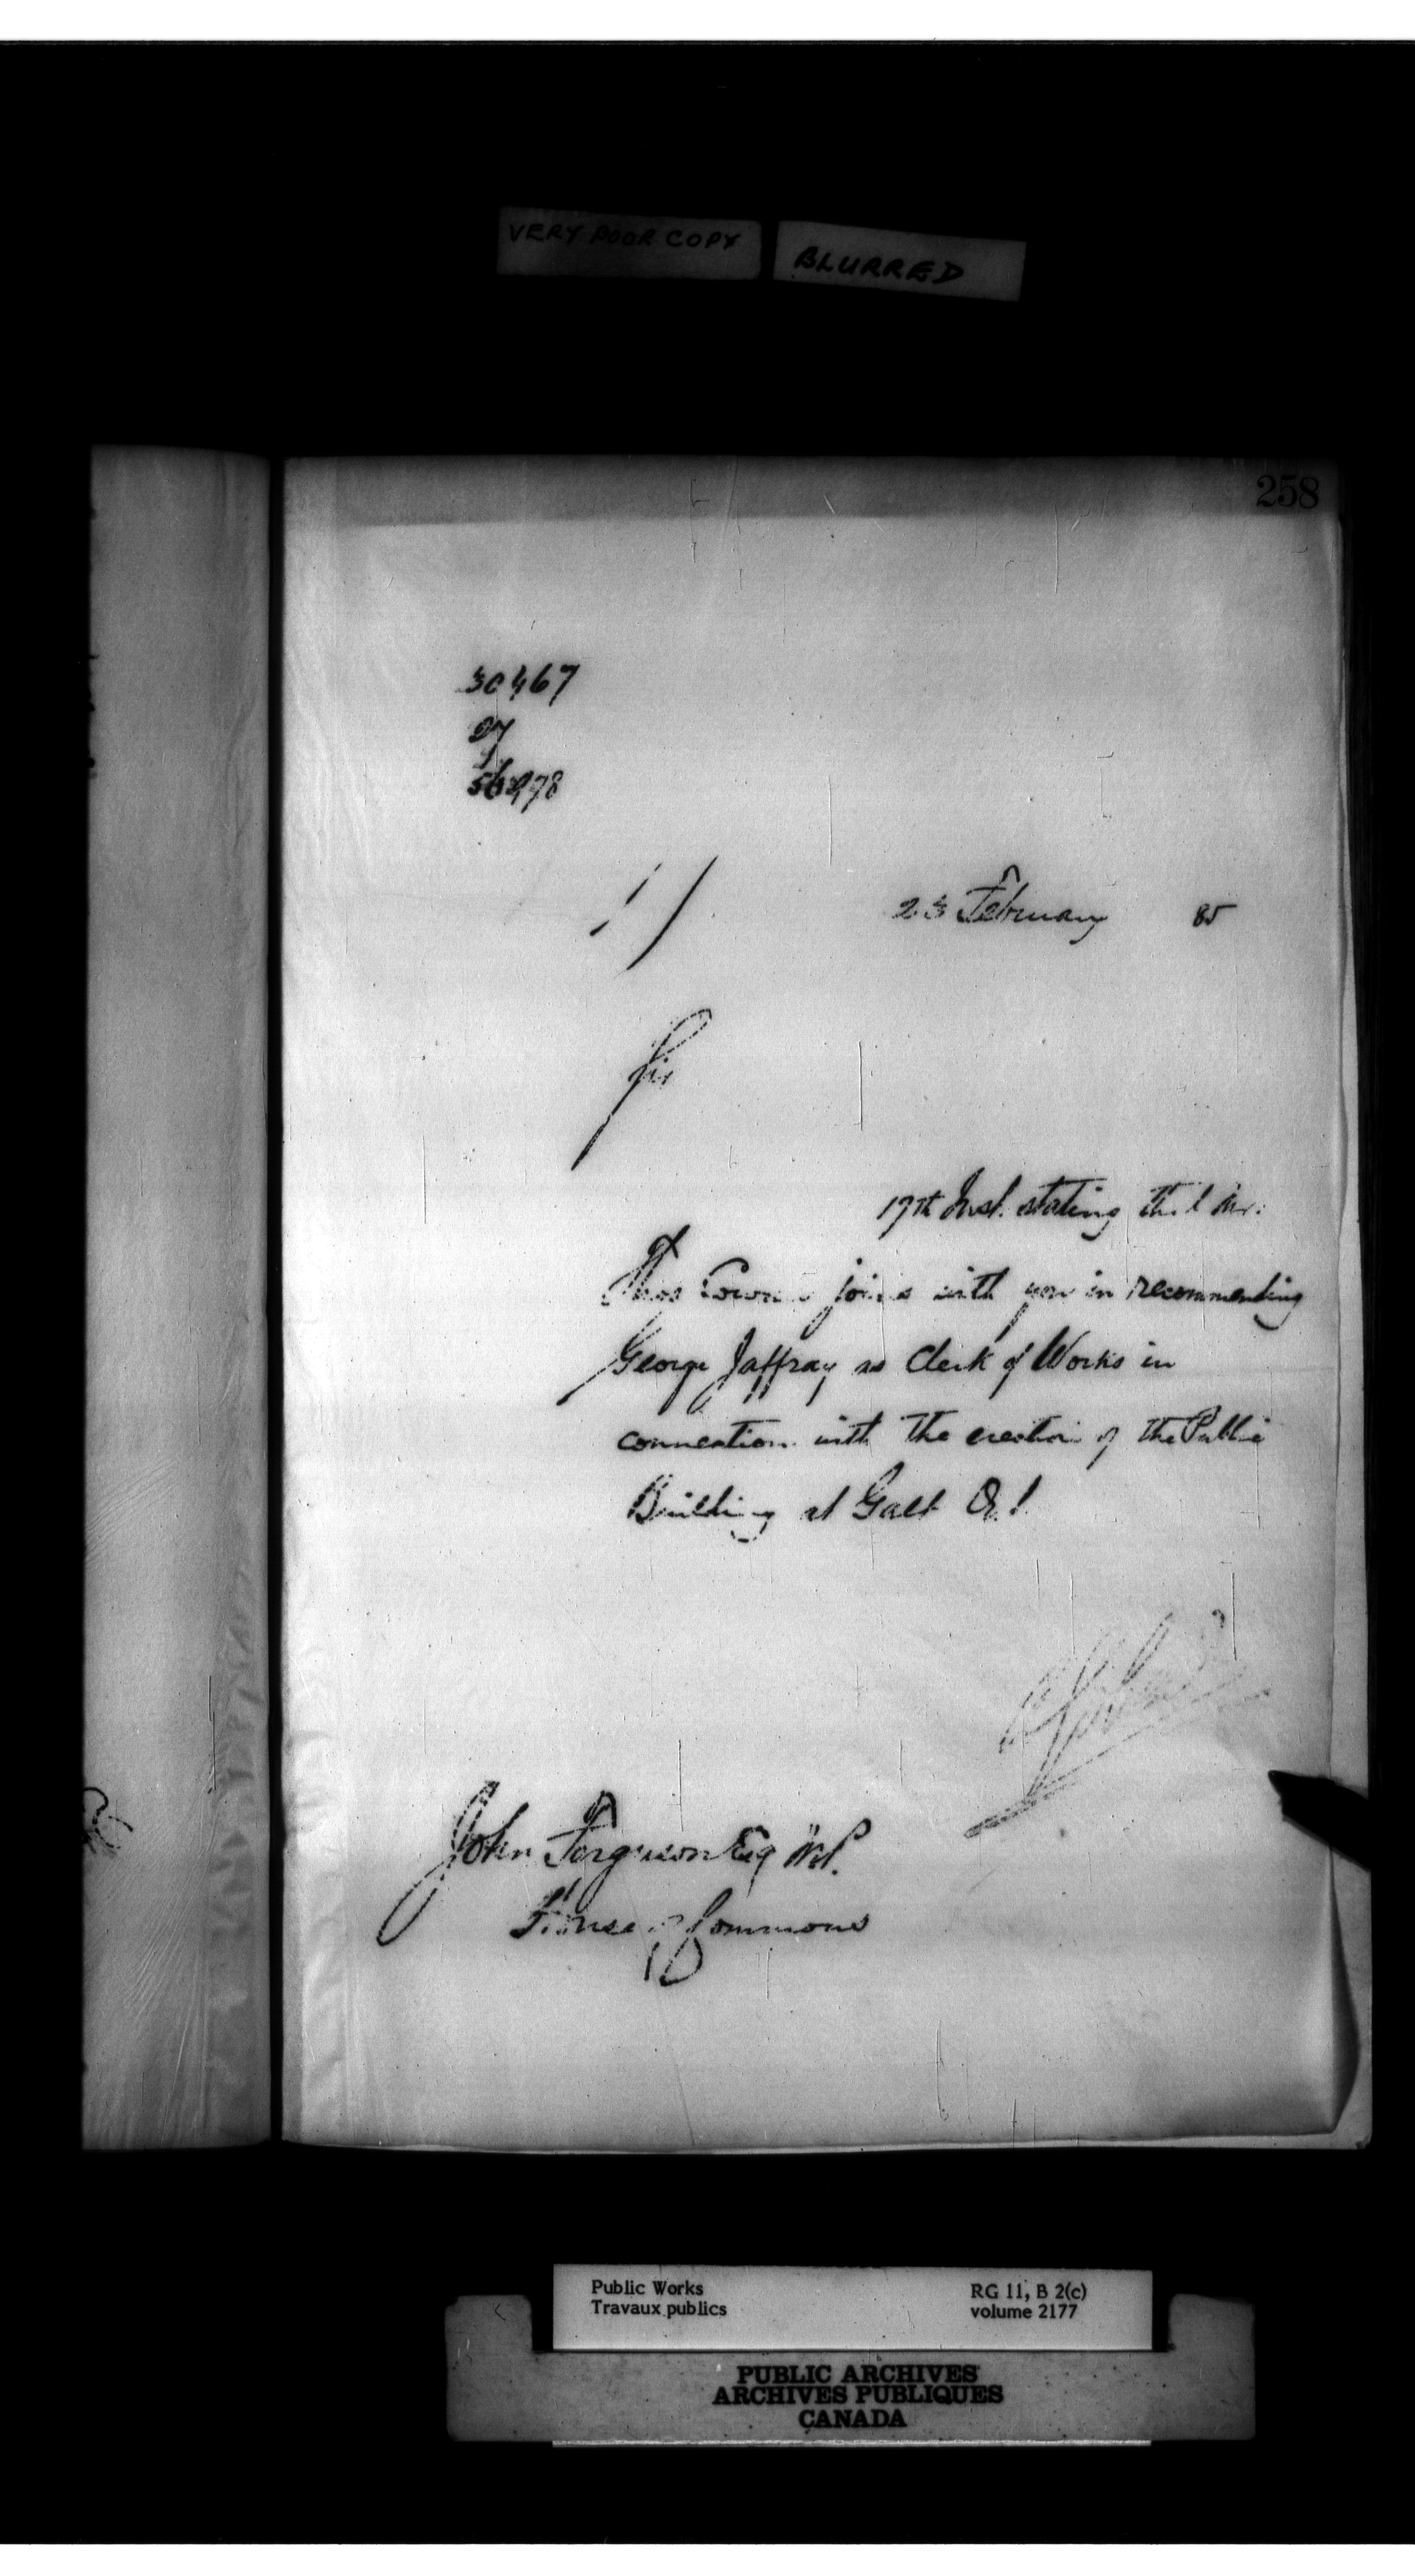 VERY POOR COPY
BLURRED
258
30467
23 February 85
Sir
17th Inst. stating that Mr.
Thos Cowan joins with you in recommending
George Jaffray as Clerk of Works in
connection with the erection of the Public
Building at Galt O.
John Ferguson Esq M.P.
House of Commons
Public Works
Travaux publics
RG 11, B 2(c)
volume 2177
PUBLIC ARCHIVES
ARCHIVES PUBLIQUES
CANADA